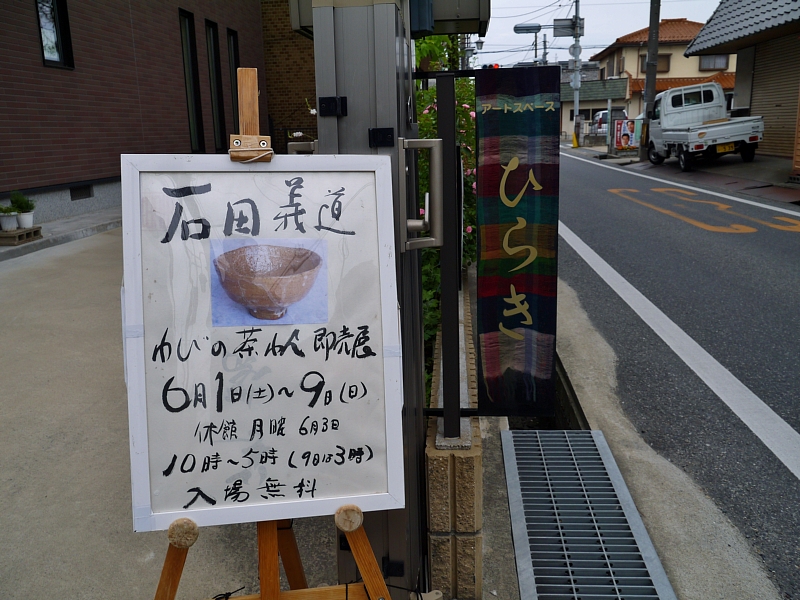 石田義道
わびの茶わん即売展
6月1日(土)～9日(日)
休館 月曜 6月3日
10時～5時(9日は3時)
入場無料
アートスペース
ひらき